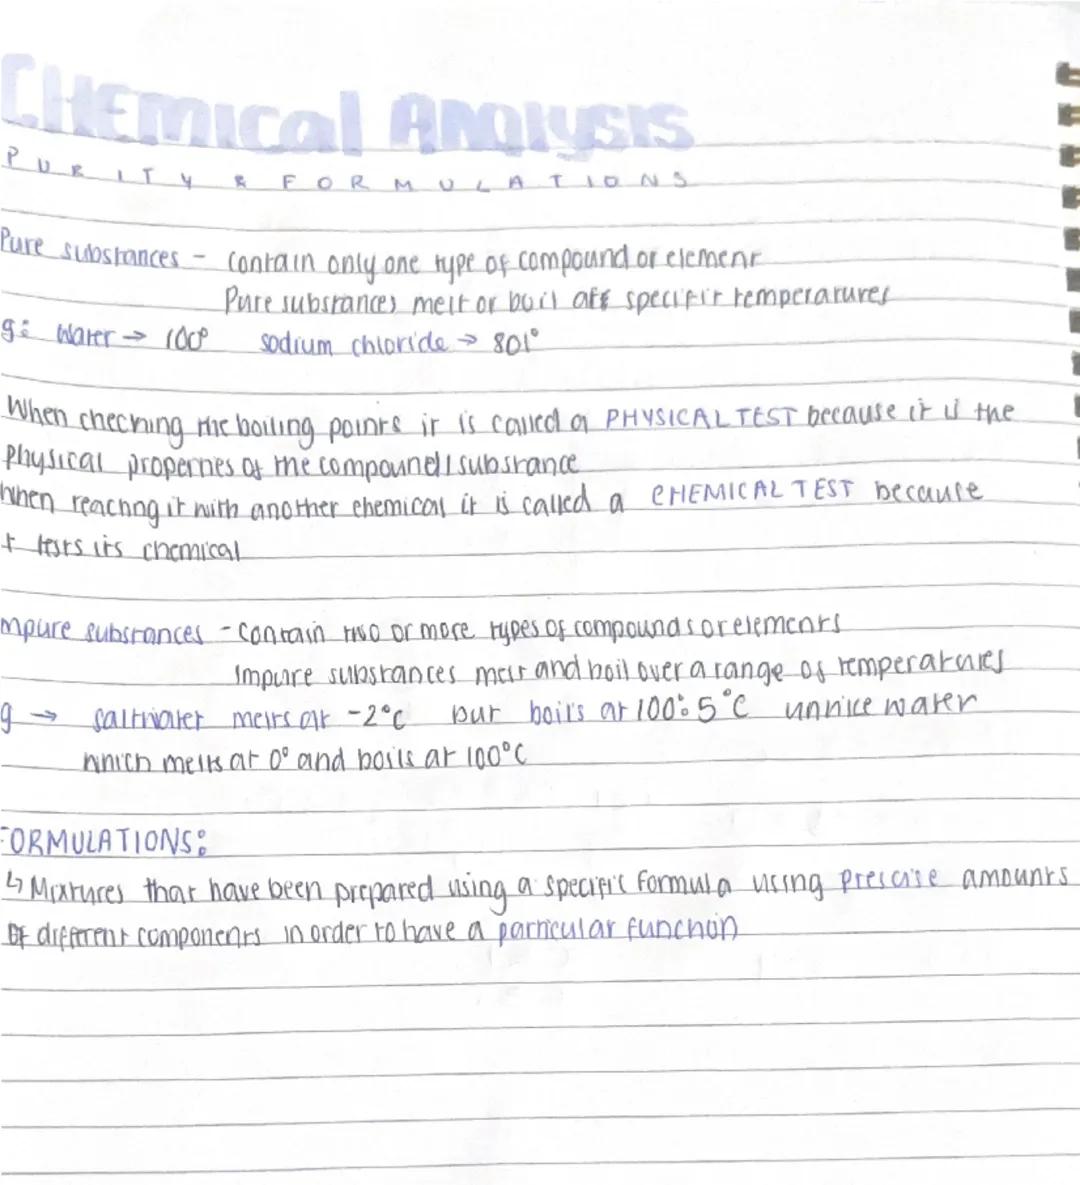 CHEMICAL ANALYSIS
PURITY & FORMULATIONS
Pure substances - contain only one type of compound or element
Pure substances melt or boil att specific temperatures
g: Water → 100° sodium chloride → 801°
When checking the boiling points it is called a PHYSICAL TEST because it is the
physical properties of the compound/substance
when reacting it with another chemical it is called a CHEMICAL TEST because
t tests its chemical
mpure substances - contain two or more types of compounds or elements
Impure substances melt and boil over a range of temperatures
g → saltwater melts at -2°C but boils at 100:5°C unlike water
which melts at 0° and boils at 100°C
FORMULATIONS:
↳ Mixtures that have been prepared using a specific formula using prescise amounts
of different components in order to have a particular function